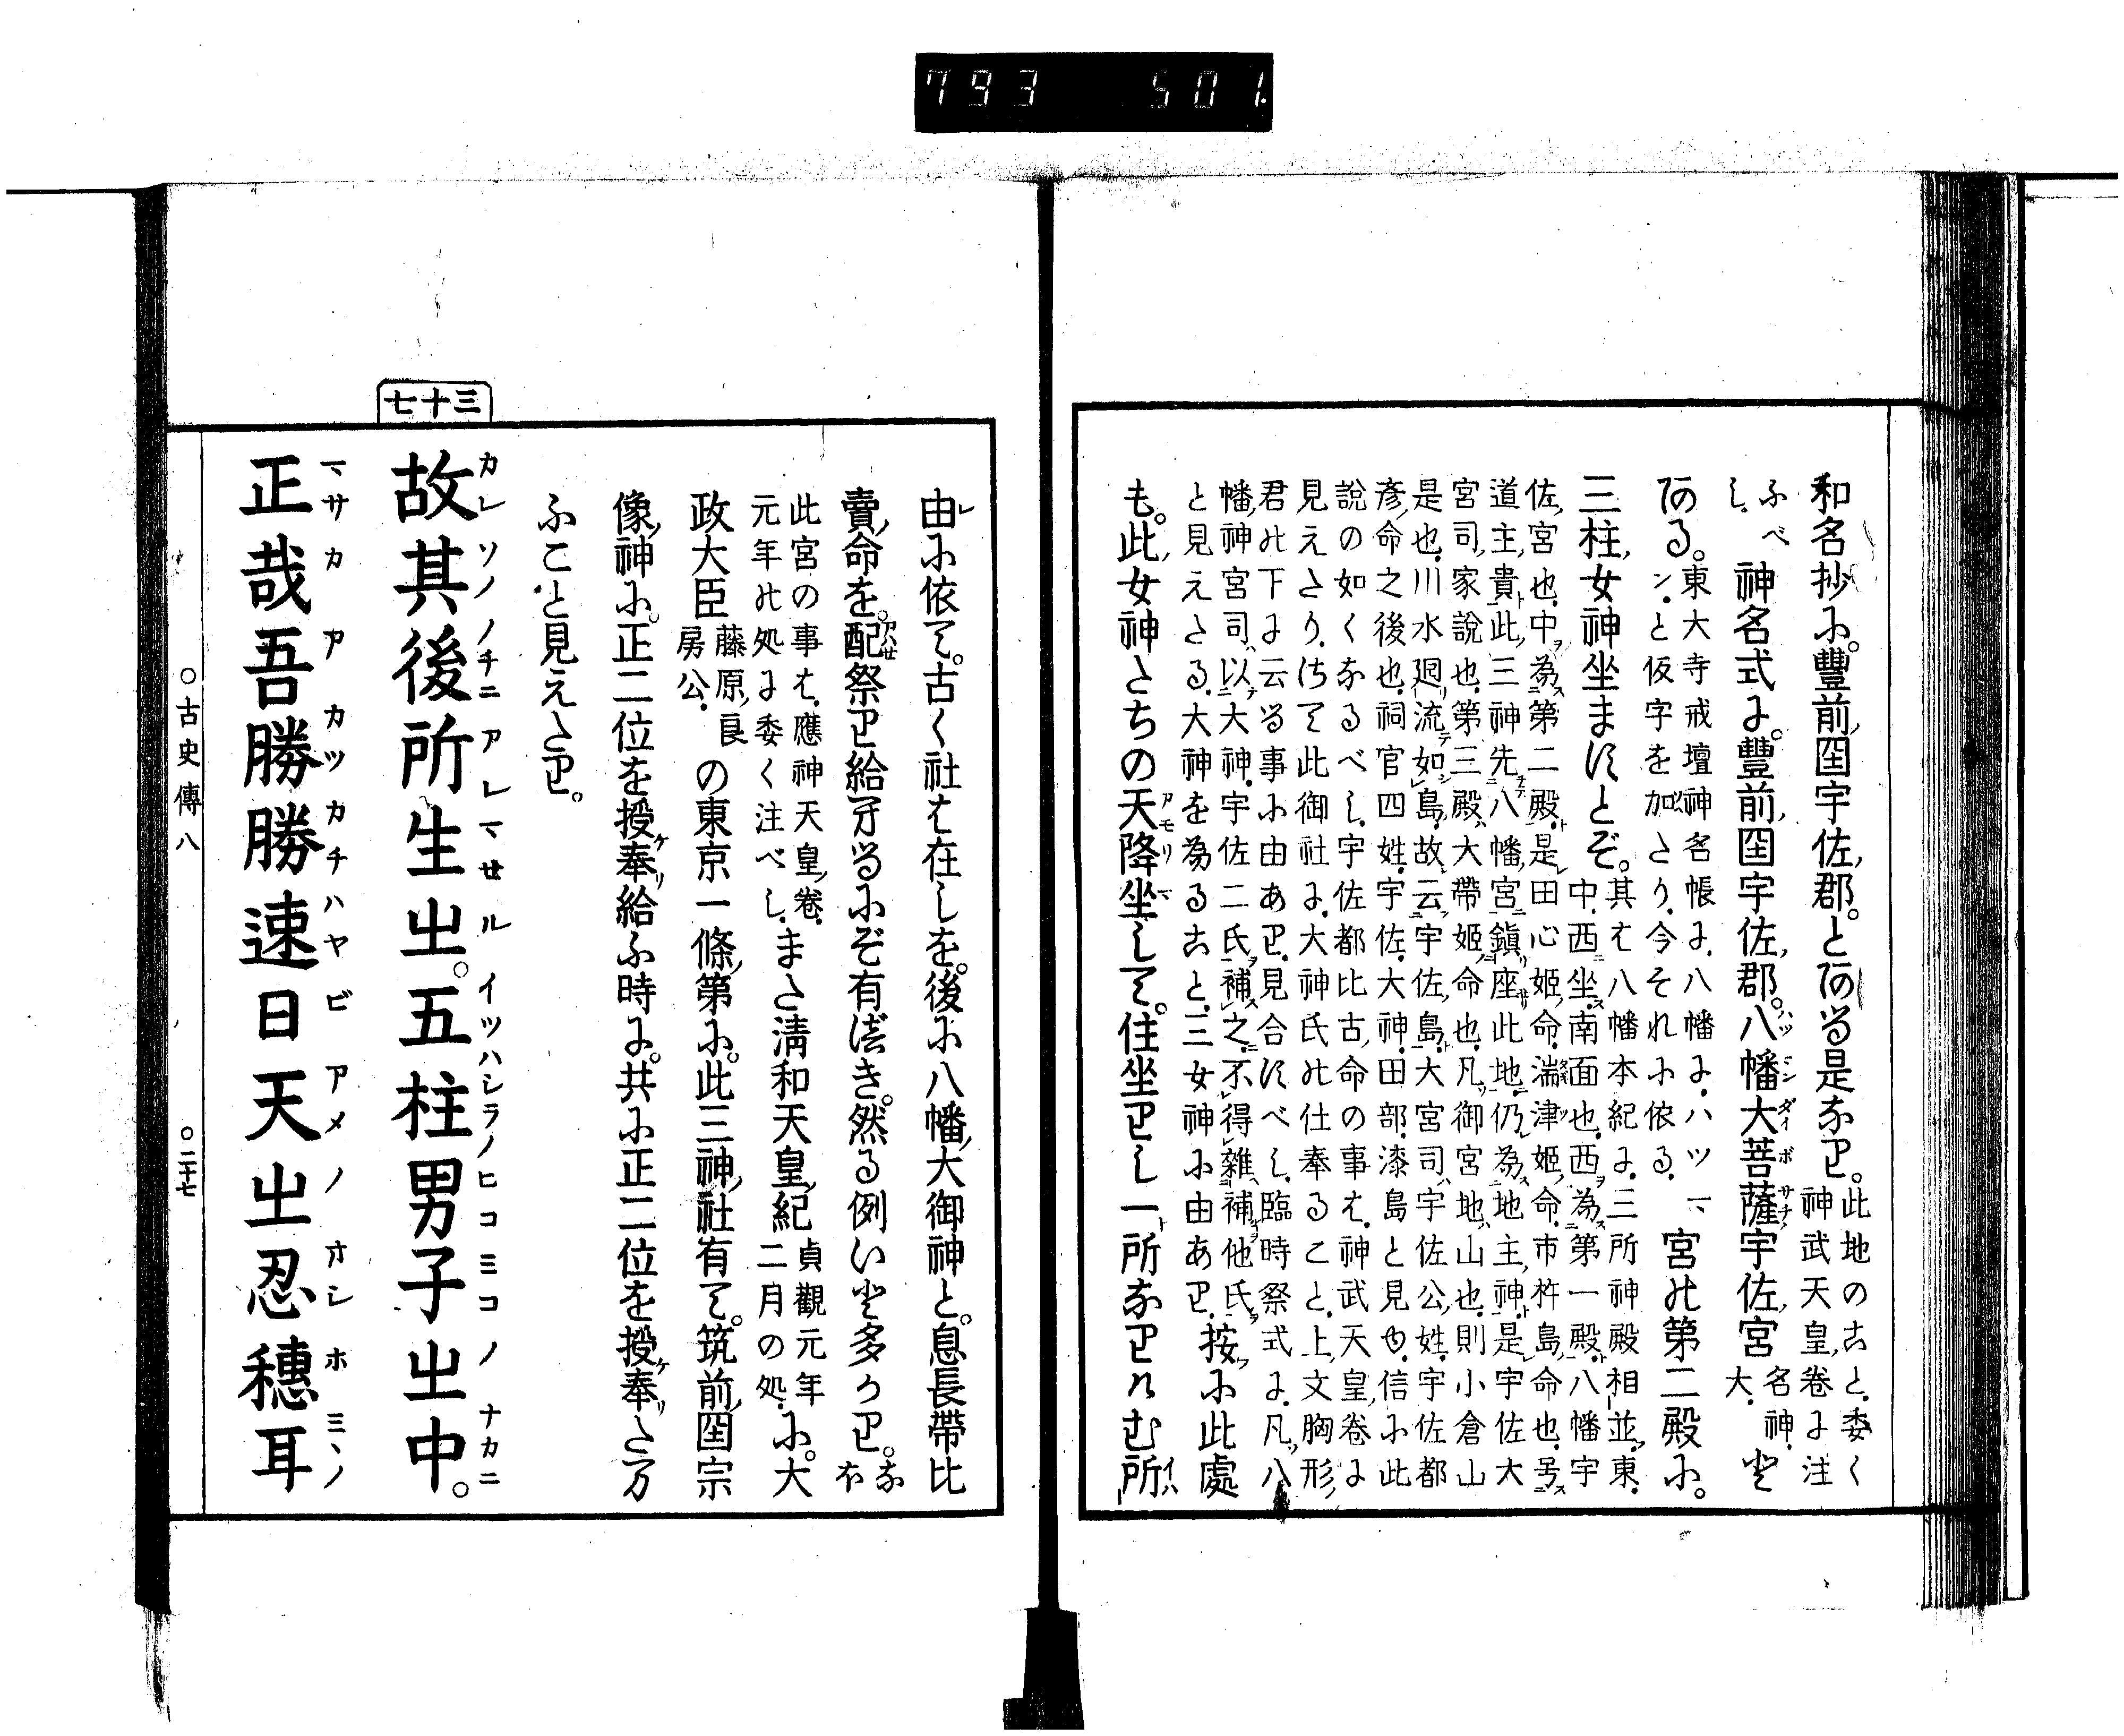 793 501.
和名抄に。豐前國宇佐郡。とある是なり。此地のこと。委く
神武天皇卷に注
ふべ
し。神名式に。豐前國宇佐郡。八幡大菩薩宇佐宮名神
大。と
ある。東大寺戒壇神名帳に。八幡に。ハツマ
ン。と仮字を加さり。今それに依る。宮の第二殿に。
三柱女神坐ますとぞ。其は八幡本紀に。三所神殿相並。東。
中。西坐。南面也。西為第一殿。八幡宇
佐宮也。中為第二殿。是田心姬命。湍津姬命。市杵島命也。号
道主貴。此三神先八幡宮鎭座此地。仍為地主神。是宇佐大
宮司家說也。第三殿大帶姬命也。凡御宮地山也。則小倉山
是也。川水廻流如島。故云宇佐島。大宮司宇佐公姓。宇佐都
彥命之後也。祠官四姓。宇佐。大神。田部。漆島と見ゆ。信に此
說の如くなるべし。宇佐都比古命の事は。神武天皇卷に
見えたり。さて此御社に。大神氏の仕奉ること。上文胸形
君の下に云る事に由あり。見合すべし。臨時祭式に。凡八
幡神宮司。以大神。宇佐二氏補之。不得雜補他氏。
と見えたる。大神を為ること。三女神に由あり。按に此處
も。此女神たちの天降坐して。住坐りし一所なりけむ所
由に依て。古く社は在しを。後に八幡大御神と。息長帶比
賣命を。配祭り給へるにぞ有べき。然る例いと多かり。なほ
此宮の事は。應神天皇卷。
元年の処に委く注べし。また淸和天皇紀貞觀元年
二月の処。に。大
政大臣藤原良
房公。の東京一條第に。此三神社有て。筑前國宗
像神に。正二位を授奉給ふ時に。共に正二位を授奉たま
ふこと見えたり。
七十三
故其後所生出。五柱男子之中。
カレソノノチニアレマセルイツハシラノヒコミコノナカニ
正哉吾勝勝速日天之忍穗耳
マサカアカツカチハヤビアメノオシホミヽノ
○古史傳八
○二十七